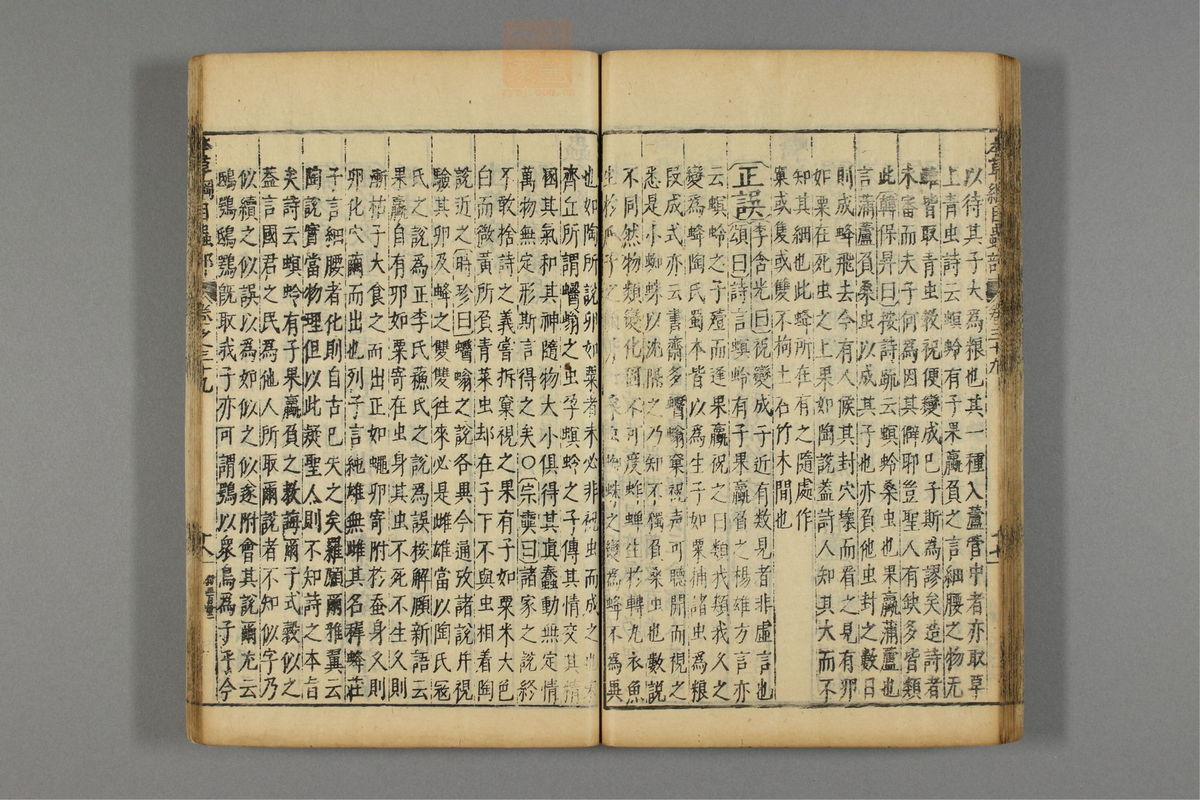 以待其子大為粮也其一種入蘆管中者亦取草
上青虫詩云螟蛉有子果蠃負之言細腰之物无
雌皆取青虫教祝便變成已子斯為謬矣造詩者
未審而夫子何為因其僻耶豈聖人有缺多皆類
此韓保昇曰按詩疏云螟蛉桑虫也果蠃蒲蘆也
言蒲蘆負桑虫以成其子也亦負他虫封之數日
則成蜂飛去今有人候其封穴壊而看之見有卵
如栗在死虫之上果如陶說蓋詩人知其大而不
知其細也此蜂所在有之隨處作
窠或隻或雙不拘土石竹木間也
正誤李含光曰祝變成子近有数見者非虛言也
頌曰詩言螟蛉有子果蠃負之楊雄方言亦
云螟蛉之子殪而逢果蠃祝之曰類我類我久之
變為蜂陶氏蜀本皆以為生子如粟捕諸虫為粮
段成式亦云書齋多蠮螉窠祝声可聽開而視之
悉是小蜘蛛以泥隔之乃知不獨負桑虫也數說
不同然物類變化固不可度蚱蟬生於轉丸衣魚
生於瓜子之
也如陶所說卵如粟者未必非祝虫而成之也宋
齊丘所謂蠮螉之虫孕螟蛉之子傳其情交其精
混其氣和其神隨物大小俱得其真蠢動無定情
萬物無定形斯言得之矣○宗奭曰諸家之説終
不敢捨詩之義嘗拆窠視之果有子如粟米大色
白而微黃所負青菜虫却在子下不與虫相着陶
說近之時珍曰蠮螉之說各異今通攷諸說并視
驗其卵及蜂之雙雙往來必是雌雄當以陶氏寇
氏之說為正李氏蘇氏之說為誤按解頤新語云
果蠃自有卵如粟寄在虫身其虫不死不生久則
漸枯子大食之而出正如蠅卵寄附於蚕身久則
卵化穴繭而出也列子言純雄無雌其名稺蜂莊
子言細腰者化則自古已失之矣羅願爾雅翼云
陶說實當物理但以此疑聖人則不知詩之本旨
矣詩云螟蛉有子果蠃負之教誨爾子式榖似之
蓋言國君之民為他人所取爾說者不知似字乃
似續之似誤以為如似之似遂附會其說爾尤云
鴟鴞鴟鴞旣取我子亦可謂鴞以衆鳥為子乎今